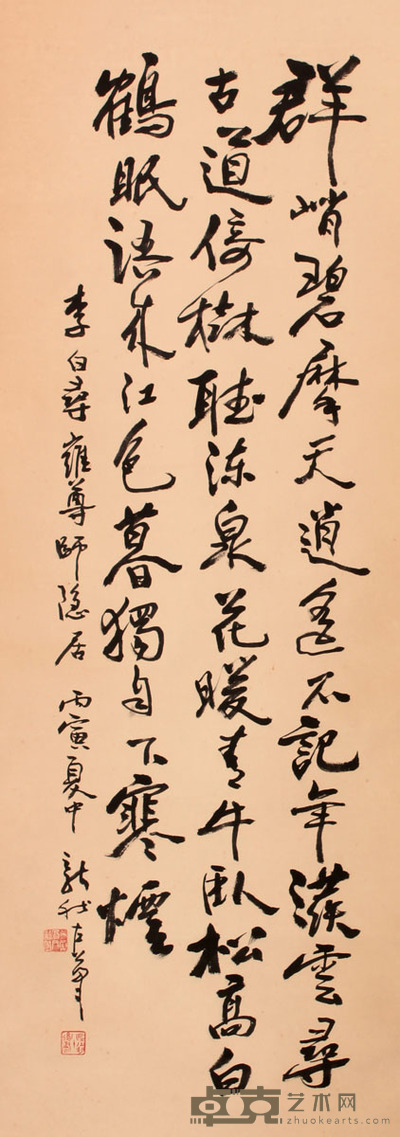 群峭碧摩天逍遥不記年撥雲尋
古道倚樹聴流泉花暖青牛臥松高白
鶴眠語来江色暮獨自下寒煙
李白尋雍尊師隐居 丙寅夏中 新我左筆
卓克艺术网
zhuokearts.com